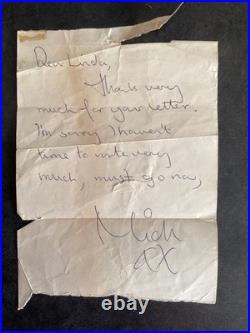 Dear Linda,
Thank very
much for your letter.
I'm sorry I havent
time to write very
much, must go now,
Mick
XX